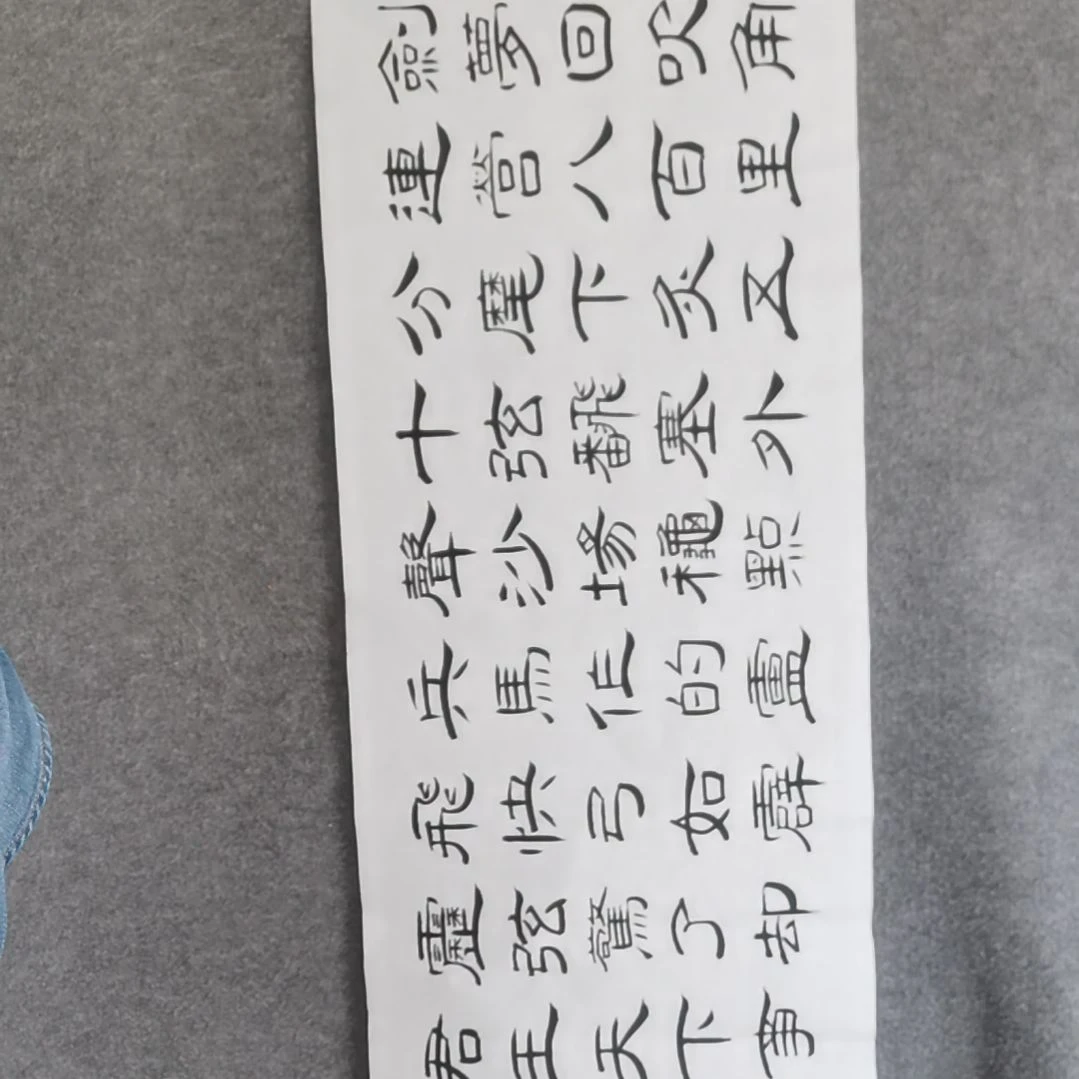 劍夢回吹角
連營八百里
分麾下炙五
十弦飜塞外
聲沙場龝點
兵馬作的盧
飛快弓如霹
靂弦驚了却
君王天下事